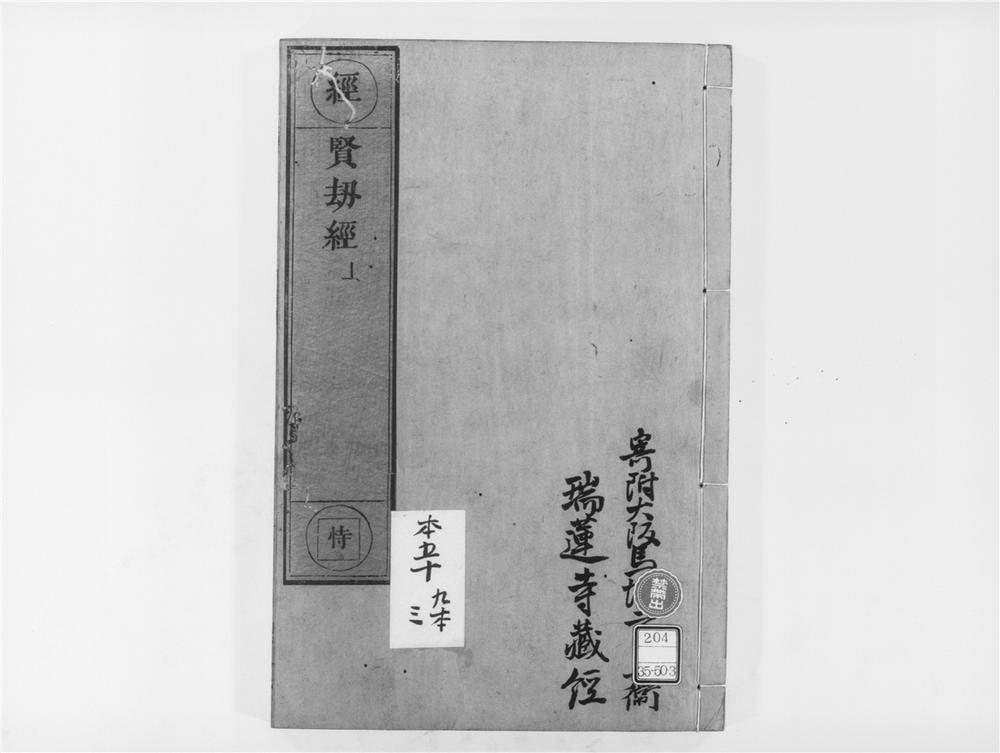 寄附大阪馬場
衞
瑞蓮寺藏經
禁帶出
204
35-503
本五十
九本
三
經
賢劫經
上
恃